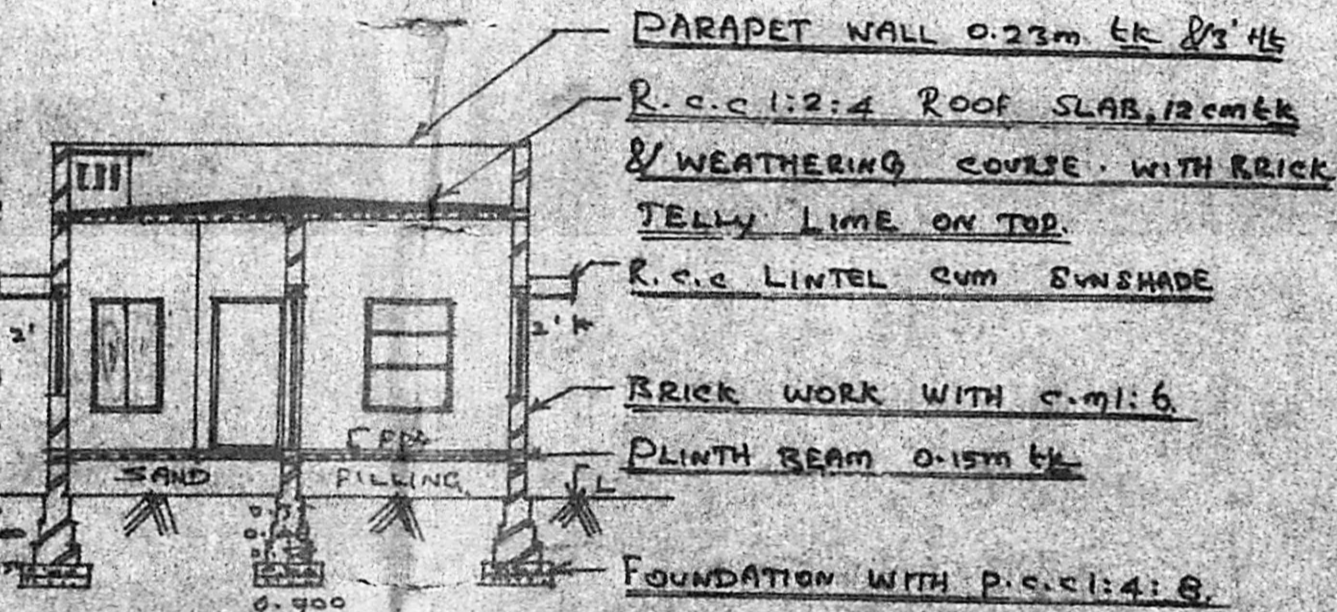 PARAPET WALL 0.23m tk & 3' Ht
R.c.c 1:2:4 ROOF SLAB, 12 cm tk
& WEATHERING COURSE. WITH BRICK
TELLY LIME ON TOP.
R.c.c LINTEL CUM SUNSHADE
2'
2'
BRICK WORK WITH c.m 1:6.
PLINTH BEAM 0.15m tk
SAND FILLING
FOUNDATION WITH P.c.c 1:4:8.
0.900